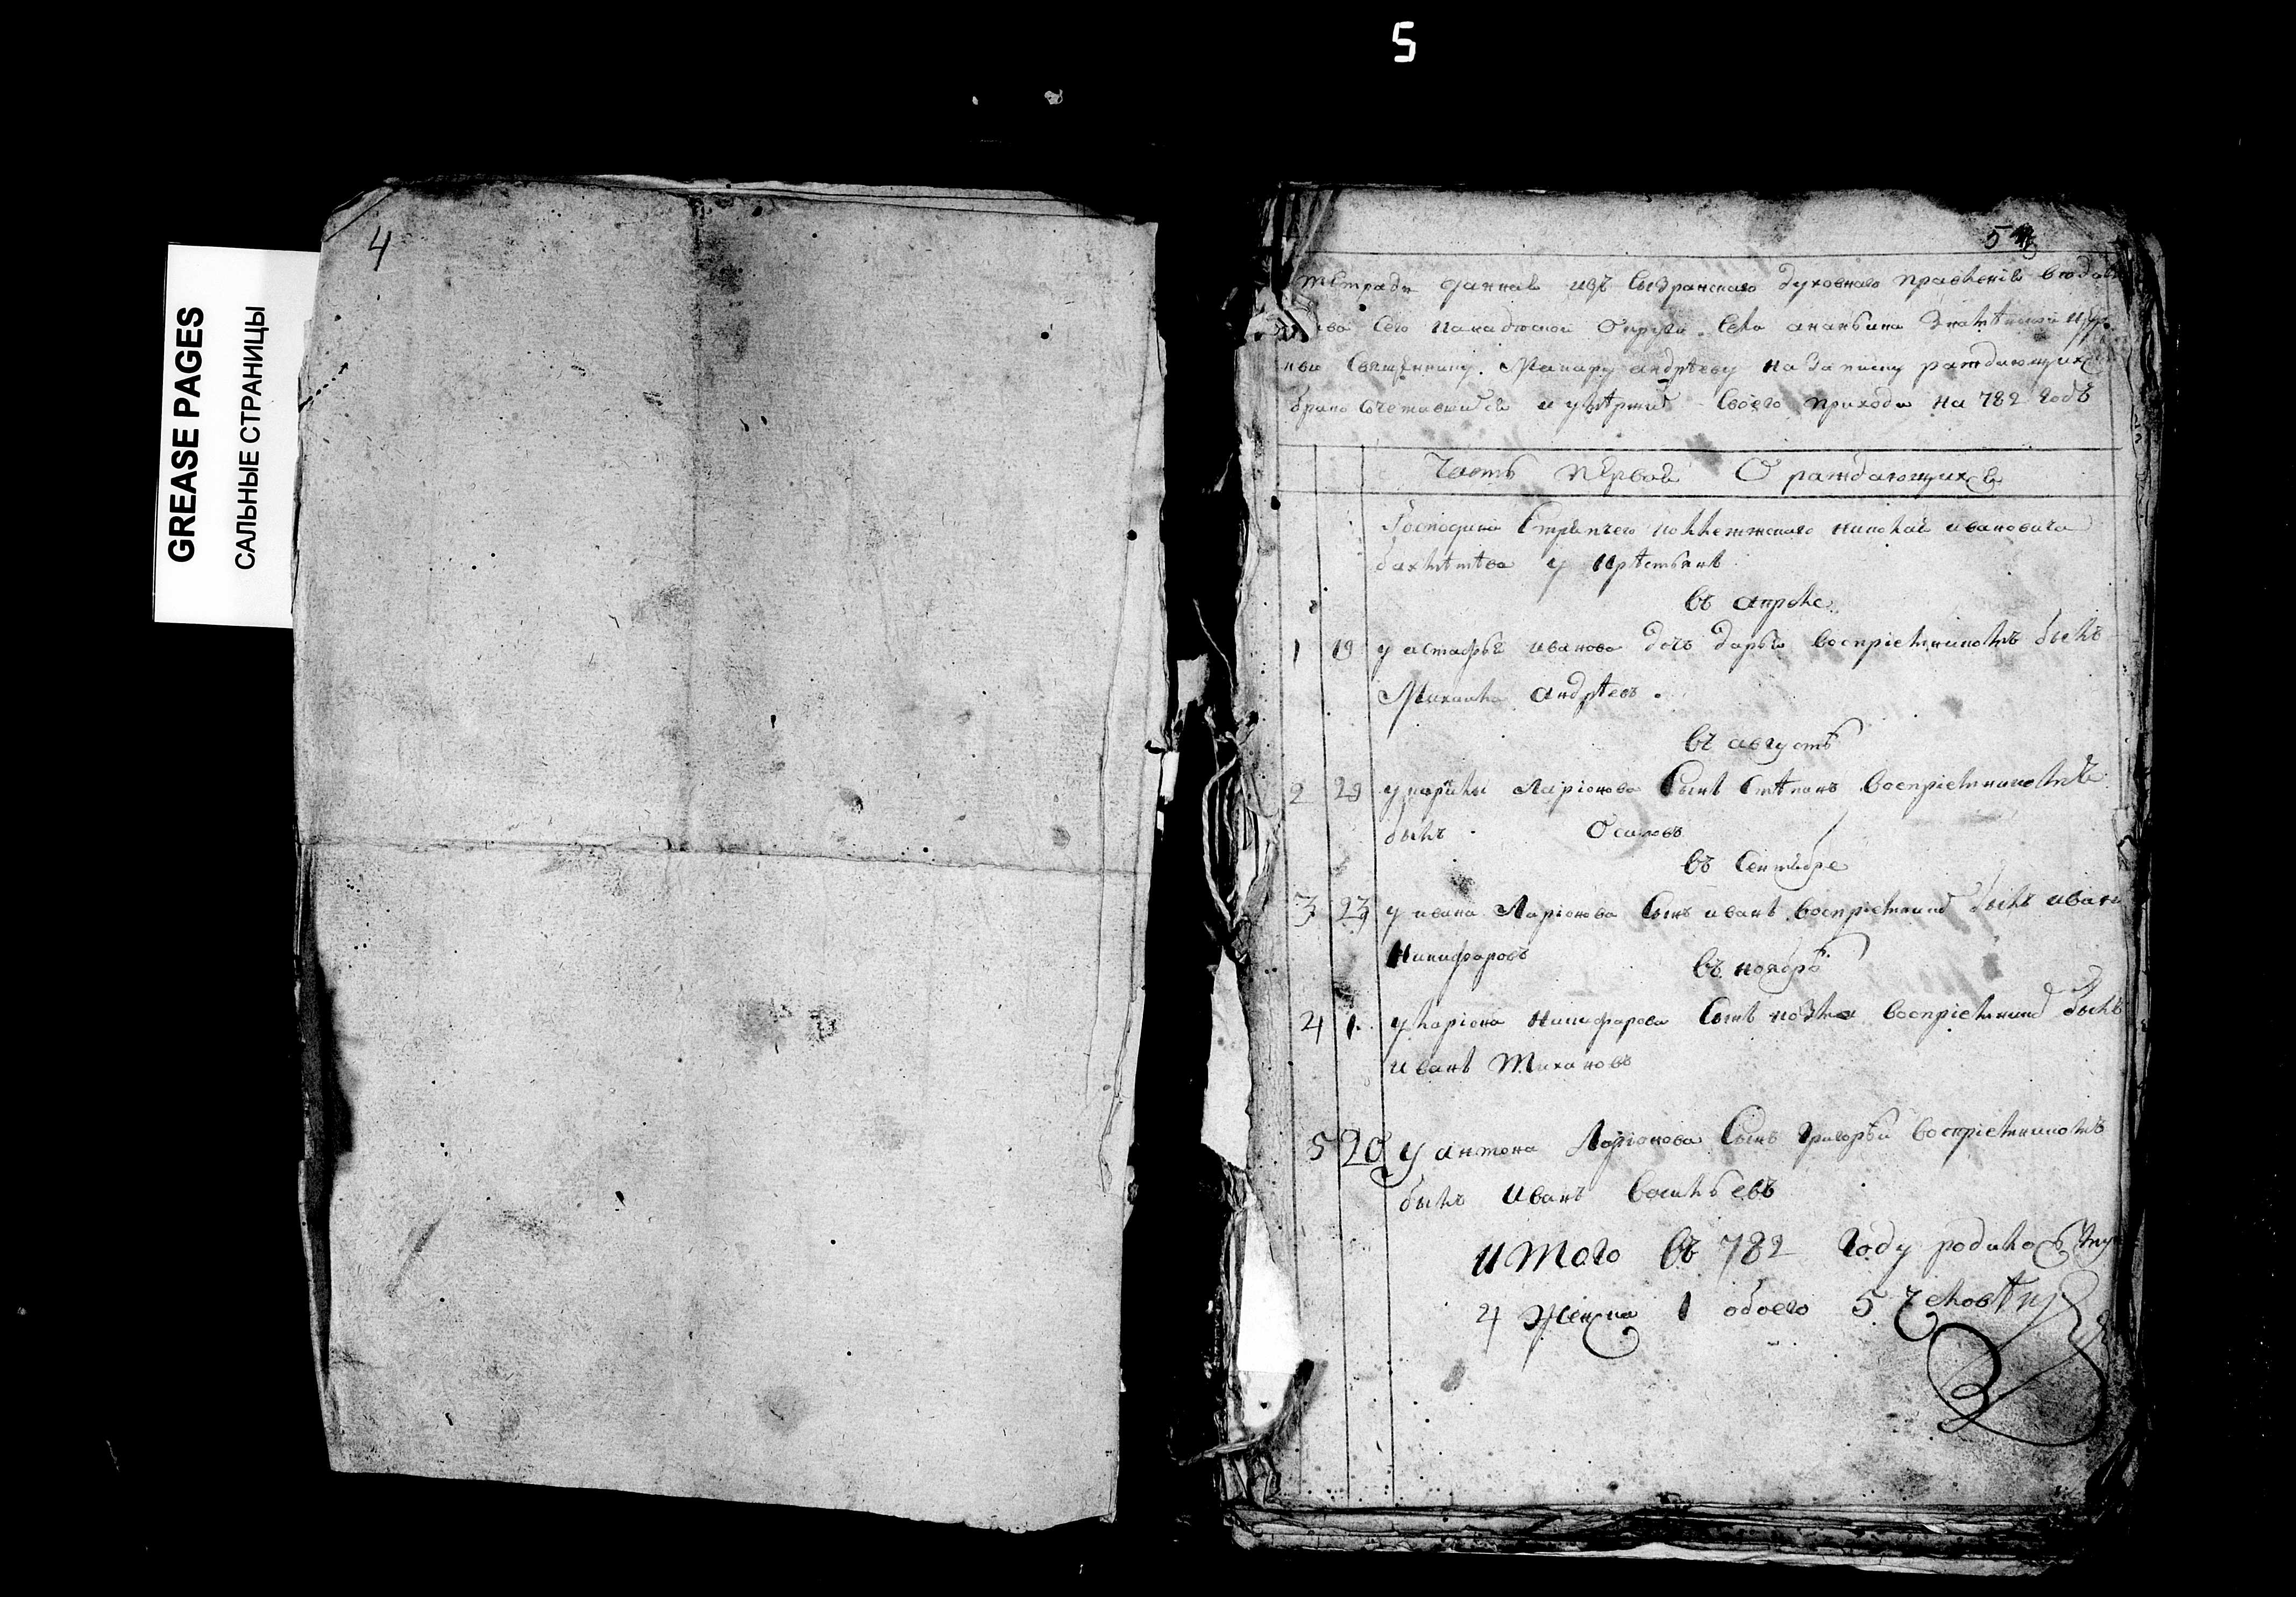 5
GREASE PAGES
САЛЬНЫЕ СТРАНИЦЫ
4
5
тетради данная изъ Сызранскаго духовнаго правления
сего канадской округи села ананьина
Священнику Макару андрѣеву на записку раждающихся
брако сочетавшихся и умерших своего прихода на 782 годъ
Часть первая О раждающихся
Господина Стряпчего колежскаго николая ивановича
бахметева у крестьянъ
въ апреле
1 19 у астафья иванова дочь дарья восприемникомъ былъ
Михаила андрѣевъ
въ августѣ
2 29 у Ларионова Сынъ Степанъ восприемникомъ
былъ Осиповъ
въ Сентябре
3 23 у ивана Ларионова Сынъ иванъ восприемник былъ иванъ
Никифоровъ
въ ноябрѣ
4 1 у лариона Никифорова Сынъ козма восприемник былъ
иванъ Тихановъ
5 20 у антона Ларионова Сынъ Григорьй восприемникомъ
былъ Иванъ Васильевъ
итого въ 782 году родилось
4 женска 1 обоего 5 человѣкъ